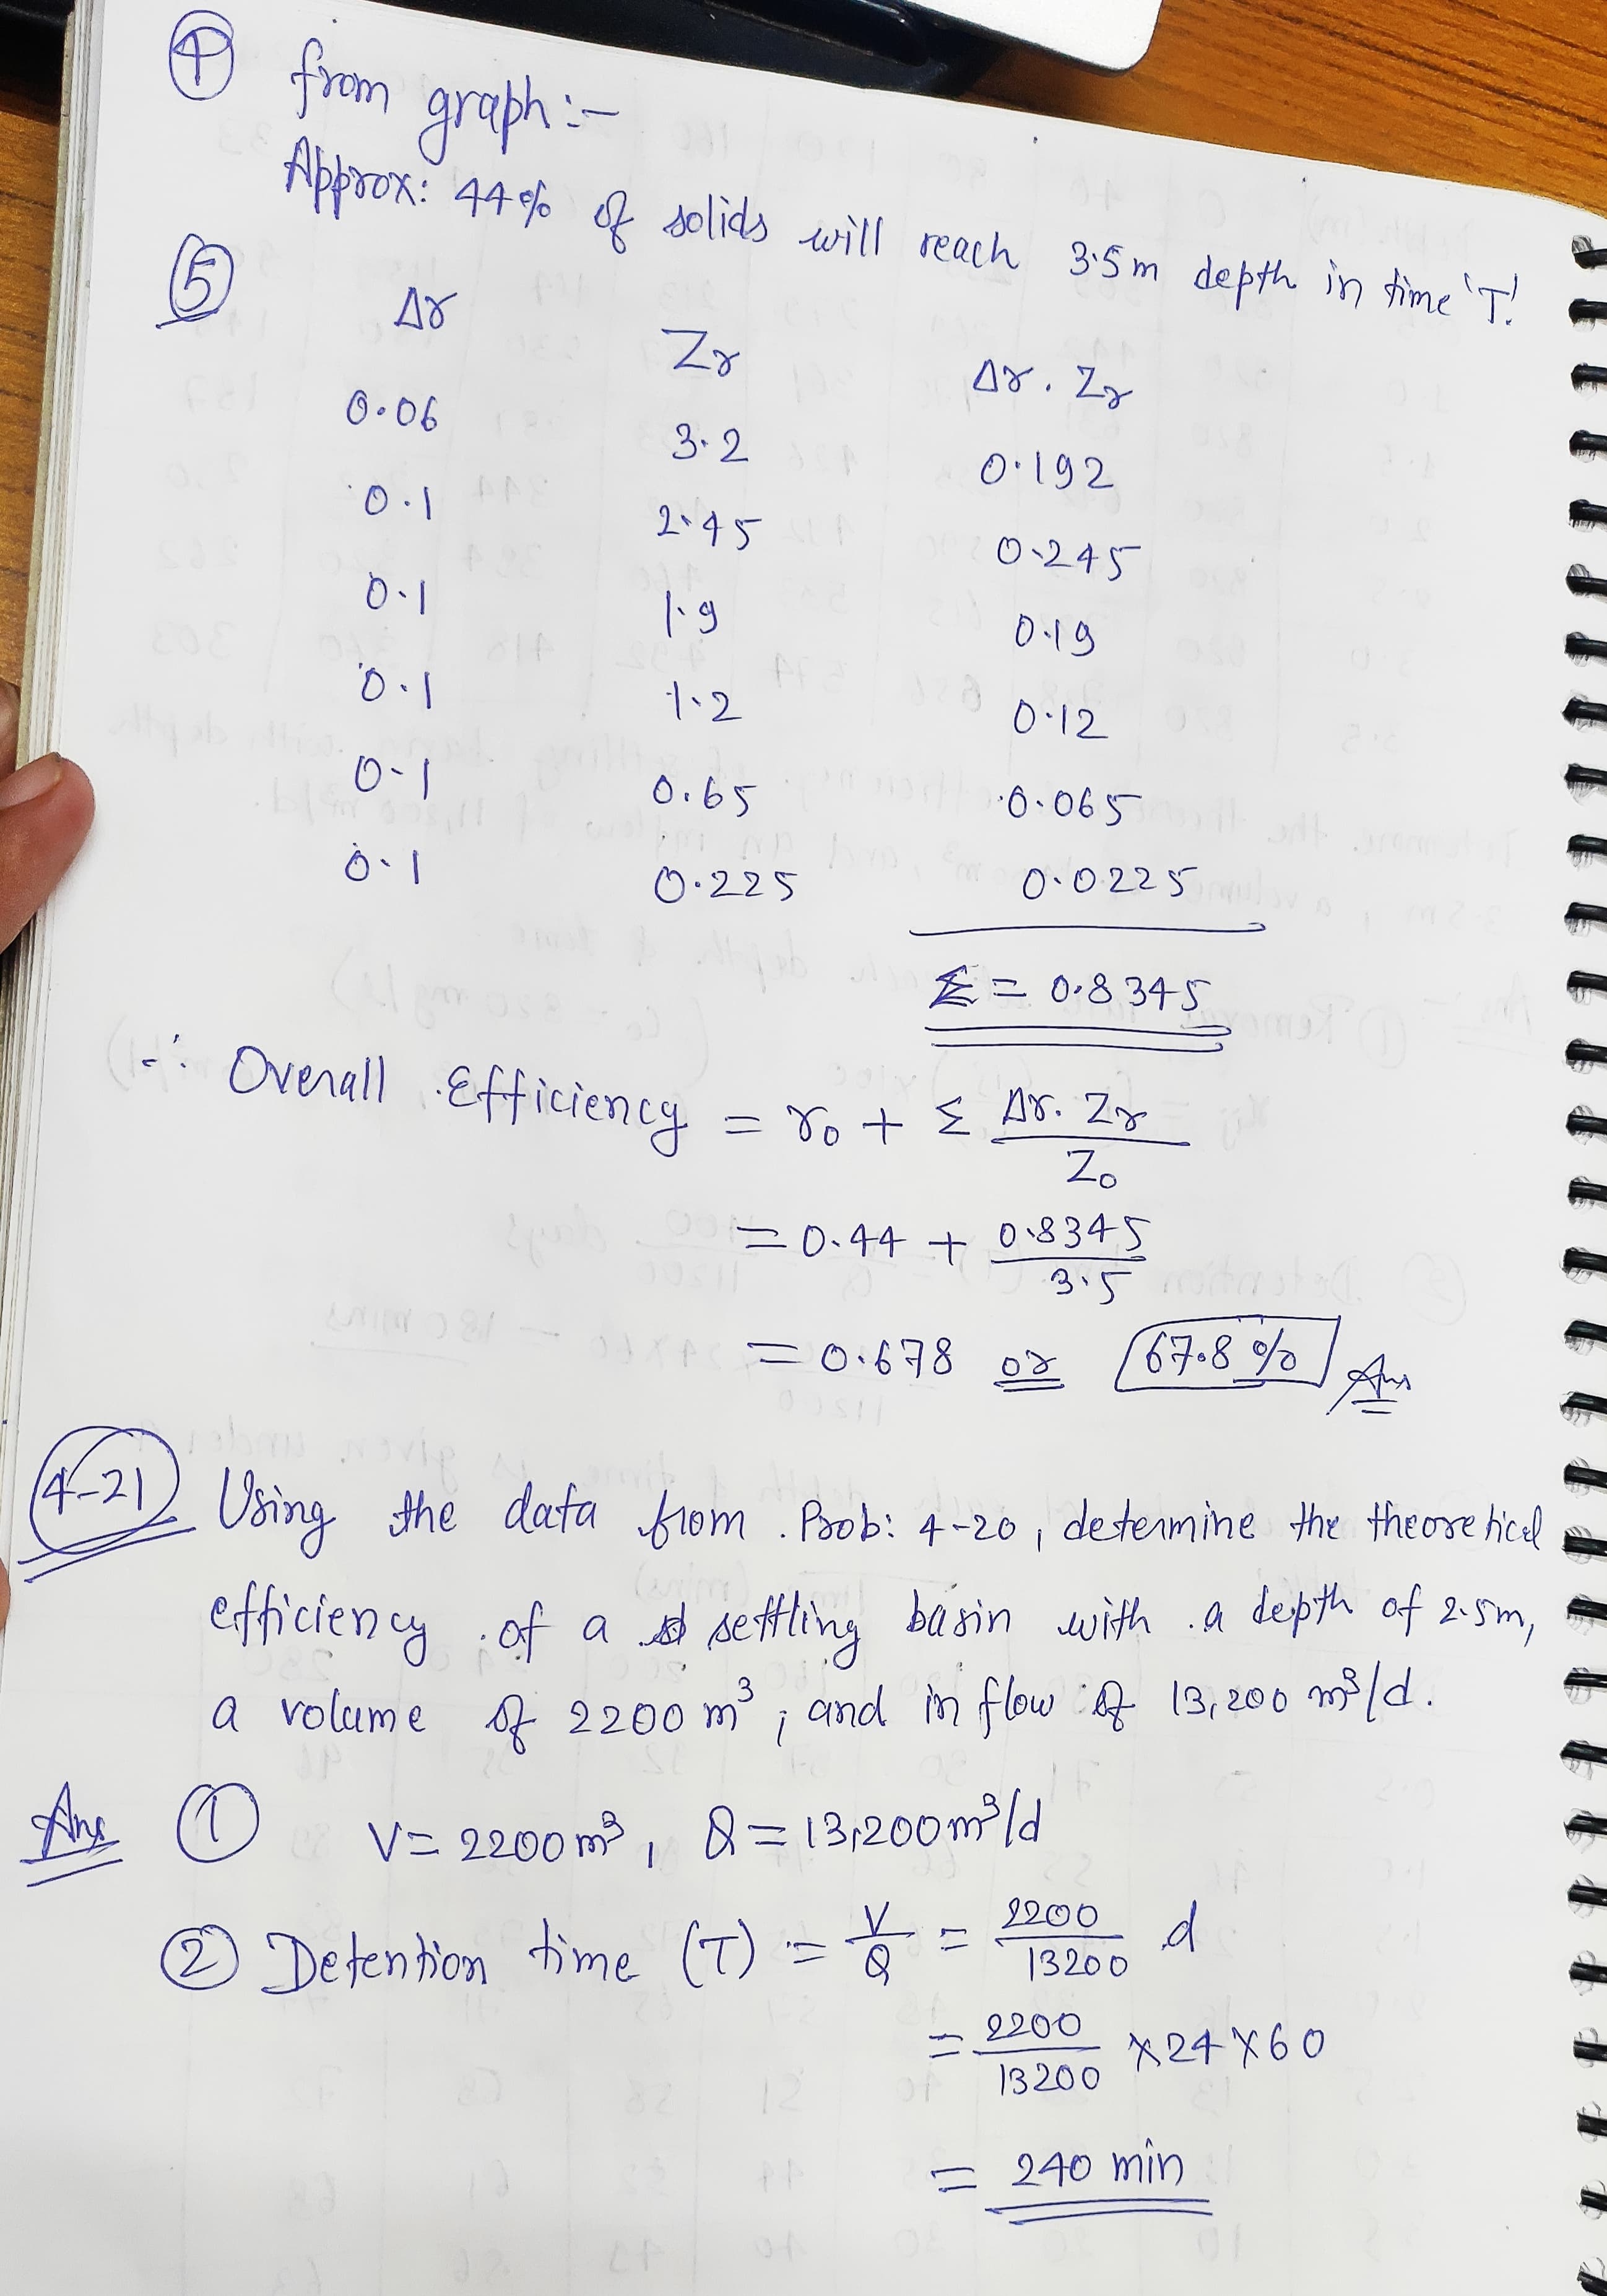 ④ from graph:-
Approx: 44% of solids will reach 3.5m depth in time 'T'.
⑤ Δr Zr Δr. Zr
0.06 3.2 0.192
0.1 2.45 0.245
0.1 1.9 0.19
0.1 1.2 0.12
0.1 0.65 0.065
0.1 0.225 0.0225
Σ = 0.8345
∴ Overall Efficiency = r₀ + Σ Δr. Zr / Z₀
= 0.44 + 0.8345 / 3.5
= 0.678 or 67.8% Ans
4-21 Using the data from Prob: 4-20, determine the theoretical
efficiency of a settling basin with a depth of 2.5m,
a volume of 2200 m³, and in flow of 13,200 m³/d.
Ans ① V = 2200 m³, Q = 13,200 m³/d
② Detention time (T) = V/Q = 2200/13200 d
= 2200/13200 × 24 × 60
= 240 min